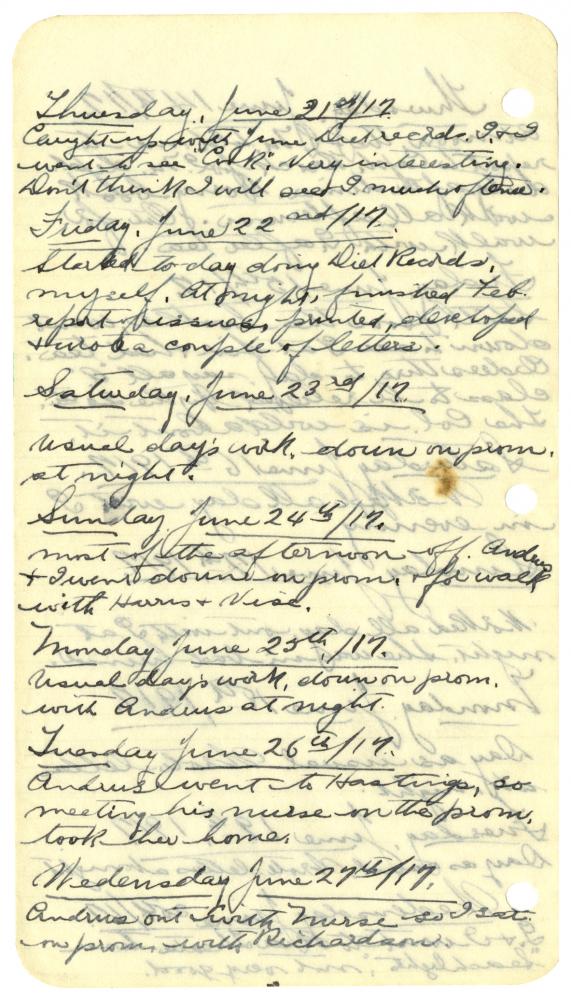 Thursday, June 21st/17.
Caught up with June Diet records. I. & I
went to see "Cook". Very interesting.
Don't think I will see I. much oftener.
Friday, June 22nd/17.
Started to day doing Diet Records,
myself. At night, finished Feb.
report of issues, printed, developed
& wrote a couple of letters.
Saturday, June 23rd/17.
Usual day's work, down on prom.
at night.
Sunday June 24th/17.
most of the afternoon off. Andrus
& I went down on prom. & for walk
with Harris & Vise.
Monday June 25th/17.
Usual day's work, down on prom.
with Andrus at night.
Tuesday June 26th/17.
Andrus went to Hastings, so
meeting his nurse on the prom,
took her home.
Wedensday June 27th/17.
Andrus out with Nurse so I sat
on prom with Richardson